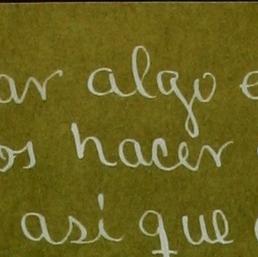 ar algo e
os hacer
así que